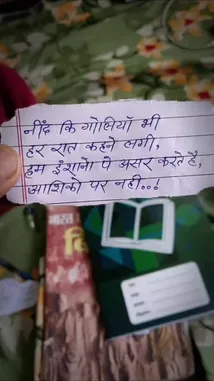 नींद कि गोलियाँ भी
हर रात कहने लगी,
हम इंशानो पे असर करते है,
आशिको पर नही..!
भारत